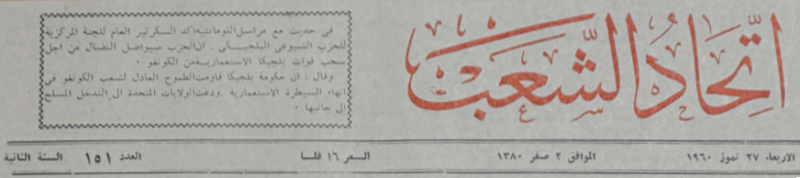 اتحاد الشعب
في حديث مع مراسل اللومانتيه اكد السكرتير العام للجنة المركزية
للحزب الشيوعي البلجيكي . ان الحزب سيواصل النضال من اجل
سحب قوات بلجيكا الاستعمارية من الكونغو .
وقال : ان حكومة بلجيكا قاومت الطموح العادل لشعب الكونغو في
انهاء السيطرة الاستعمارية . ودعت الولايات المتحدة الى التدخل المسلح
الى جانبها .
الاربعاء ٢٧ تموز ١٩٦٠ الموافق ٢ صفر ١٣٨٠ السعر ١٦ فلسا العدد ١٥١ السنة الثانية